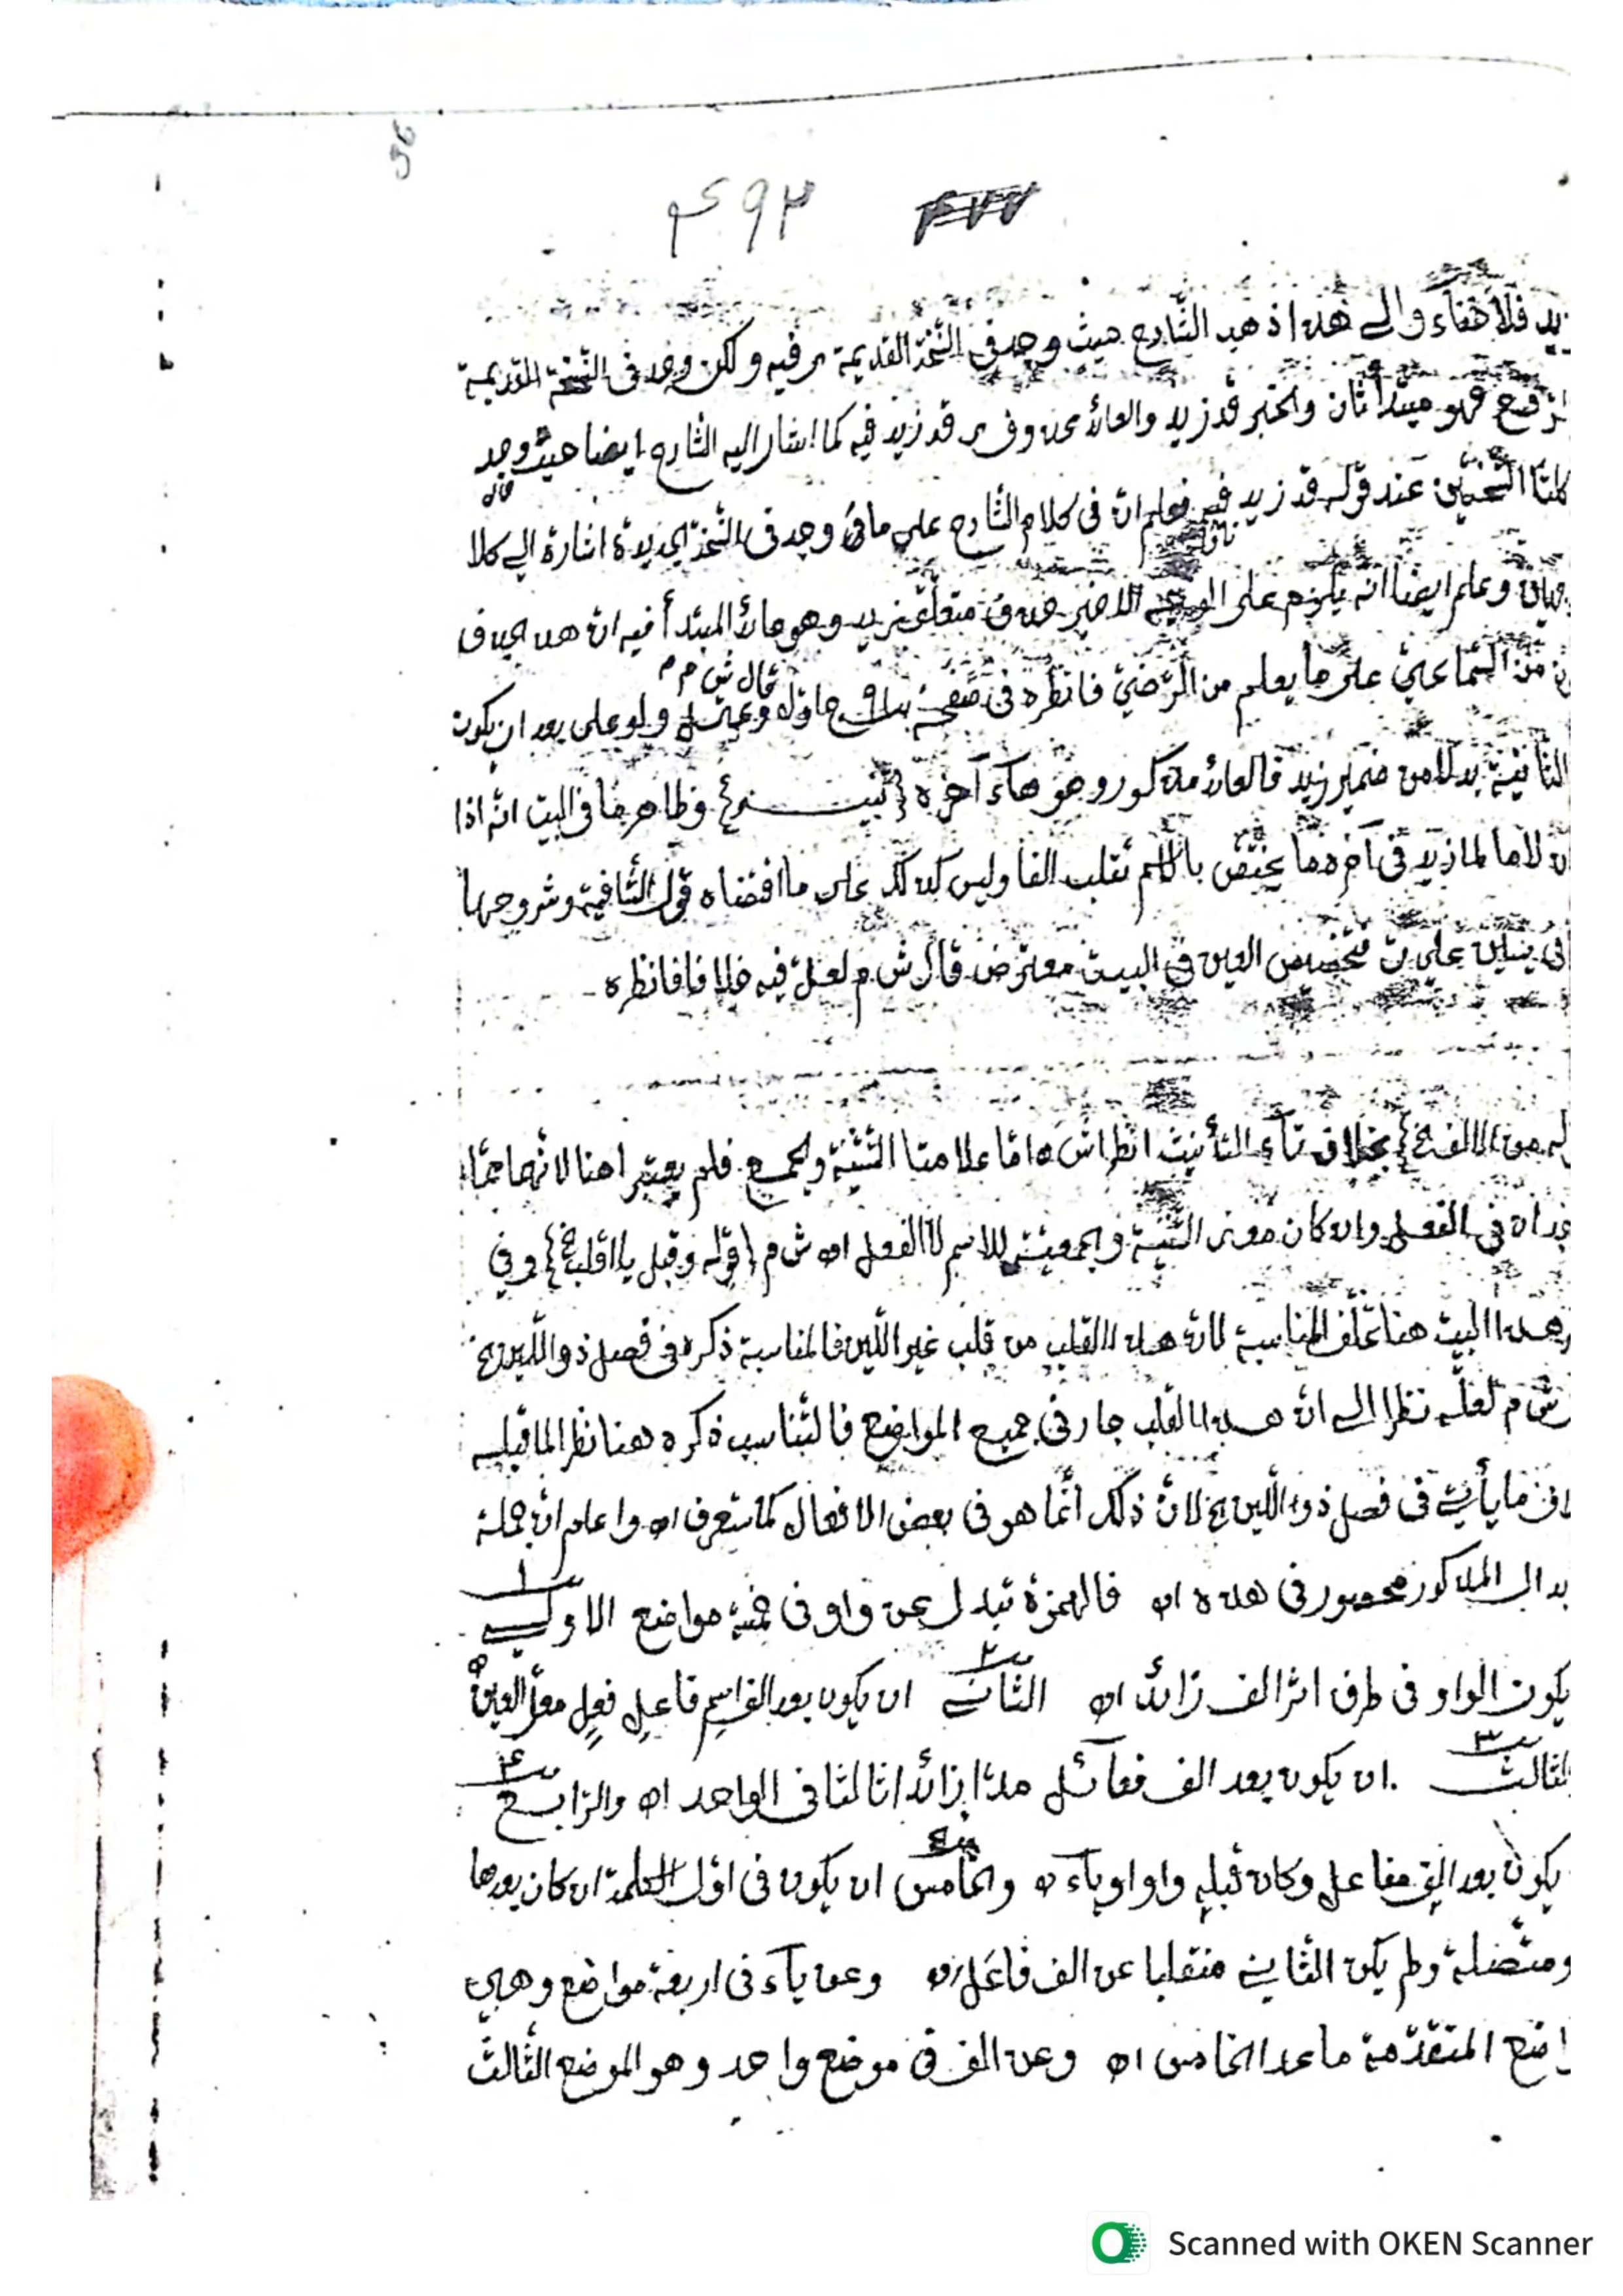 ۴۹۳
زيد فلا خفاء والى هذا ذهب الشارح حيث وجد فى النسخة القديمة فيه ولكن وجد فى النسخة القديمة
فهو مبتدأ ثان والخبر قد زيد والعائد محذوف قد زيد فيه كما اشار اليه الشارح ايضا حيث وجد
كلتا النسختين عند قوله قد زيد فيه فعلم ان فى كلام الشارح على ما وجد فى النسخة الجديدة اشارة الى كلا
وعلم ايضا انه يلزم على الوجه الاخير حذف متعلق زيد وهو عائد المبتدأ فيه ان هذا
من السماعى على ما يعلم من الرضى فانظره فى صفحة قال ش م م ولو على بعد ان يكون
الثانية بدلا من ضمير زيد فالعائد مذكور وهو هاء آخره {تنبيه} وظاهر ما فى البيت انه اذا
لاما لما زيد فى آخره ما يختص بالاسم تقلب الفا وليس كذلك على ما اقتضاه قول الشافية وشروحها
على ان تخصيص العين فى البيت معترض قال ش م لعل فيه خلافا فانظره
بخلاف تاء التأنيث انظر اش ه اما علامتا التثنية والجمع فلم يعتبرا هنا لانهما مما
فى الفعل وان كان معنى التثنية والجمعية للاسم لا الفعل اه ش م {قوله وقبل يا اقلب الخ} وفى
هذا البيت هنا تخلف المناسبة لان هذا القلب من قلب غير اللين فالمناسبة ذكره فى فصل ذو اللين الخ
ش م لعله نظرا الى ان هذا القلب جار فى جميع المواضع فالتناسب ذكره هنا نظرا لما قبله
ما يأتى فى فصل ذو اللين الخ لان ذلك انما هو فى بعض الافعال كما ستعرف اه واعلم ان جملة
المذكور محصور فى هذه اه فالهمزة تبدل عن واو فى خمسة مواضع الاولى ١
يكون الواو فى طرف اثر الف زائد اه الثانى ٢ ان يكون بعد الف اسم فاعل فعل معل العين اه
الثالث ٣ ان يكون بعد الف فعائل مدا زائدا ثالثا فى الواحد اه والرابع ٤
يكون بعد الف مفاعل وكان قبله واو او ياء اه والخامس ٥ ان يكون فى اول الكلمة ان كان بعدها
ومتصلة ولم يكن الثانى منقلبا عن الف فاعل اه وعن ياء فى اربعة مواضع وهى
المتقدمة ما عدا الخامس اه وعن الف فى موضع واحد وهو الموضع الثالث
Scanned with OKEN Scanner